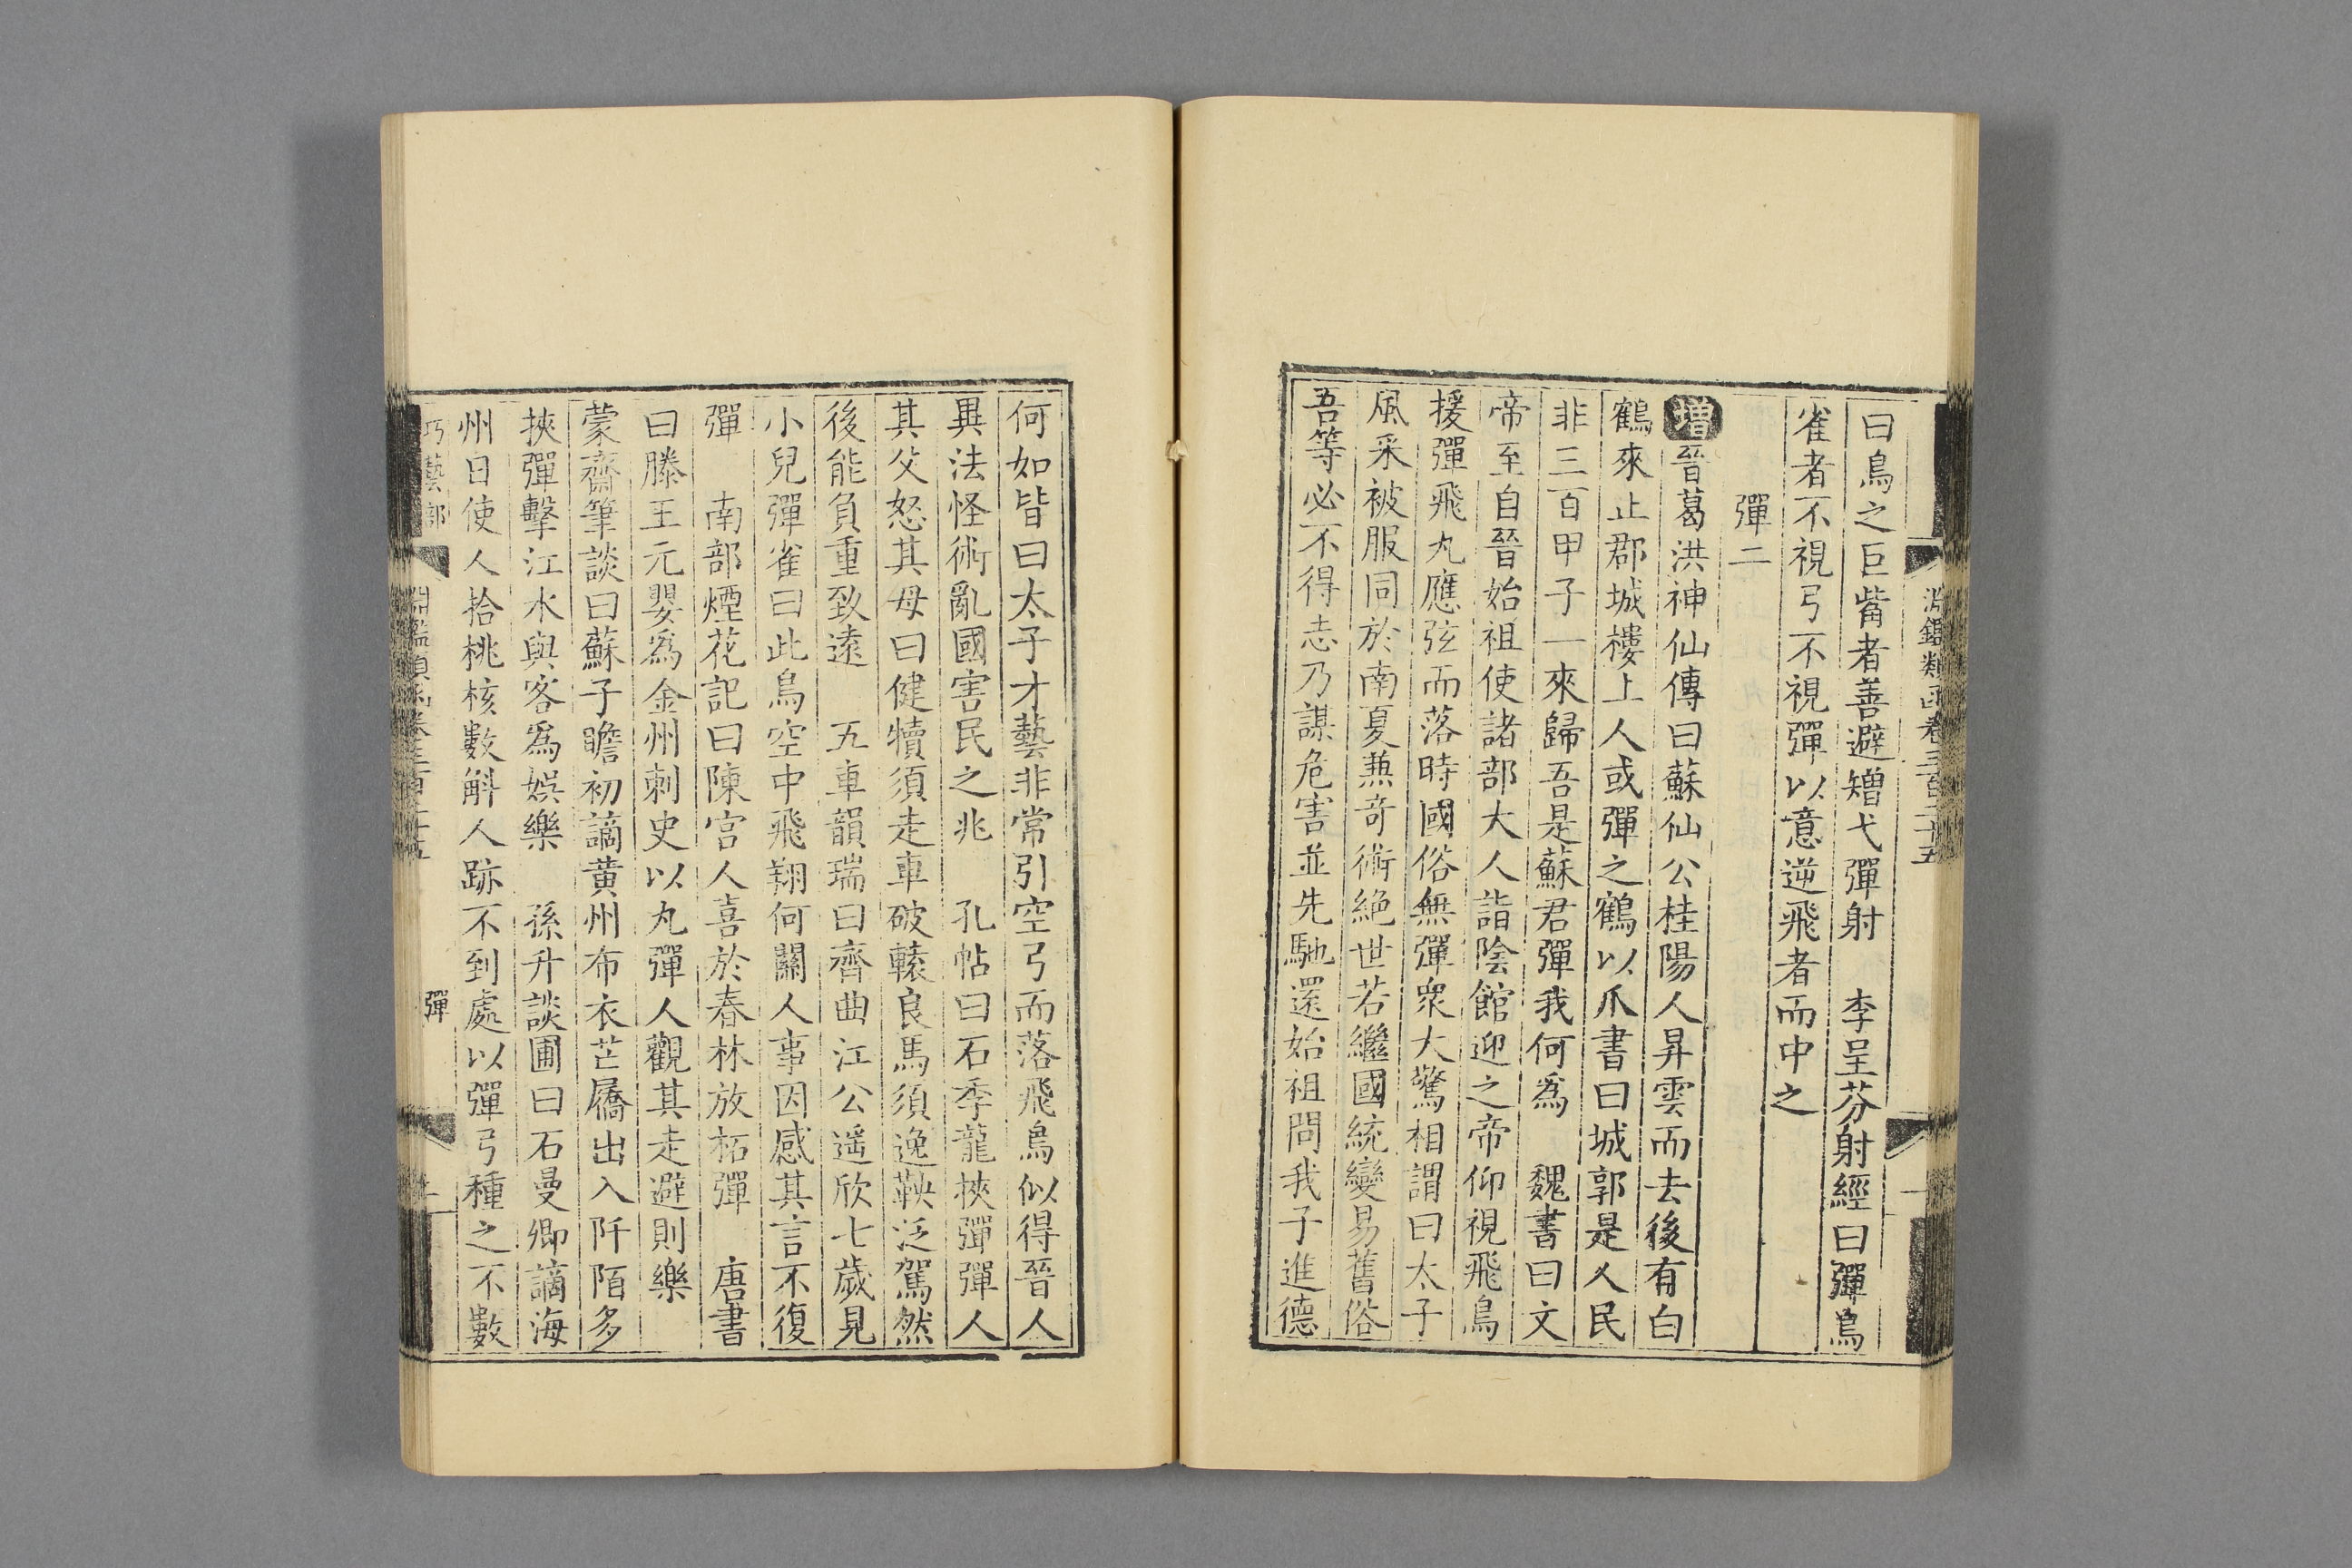 曰鳥之巨觜者善避矰弋彈射　李呈芬射經曰彈鳥
雀者不視弓不視彈以意逆飛者而中之
彈二
增晉葛洪神仙傳曰蘇仙公桂陽人昇雲而去後有白
鶴來止郡城樓上人或彈之鶴以爪書曰城郭是人民
非三百甲子一來歸吾是蘇君彈我何爲　魏書曰文
帝至自晉始祖使諸部大人詣陰館迎之帝仰視飛鳥
援彈飛丸應弦而落時國俗無彈衆大驚相謂曰太子
風采被服同於南夏兼奇術絶世若繼國統變易舊俗
吾等必不得志乃謀危害並先馳還始祖問我子進德
何如皆曰太子才藝非常引空弓而落飛鳥似得晉人
異法怪術亂國害民之兆　孔帖曰石季龍挾彈彈人
其父怒其母曰健犢須走車破轅良馬須逸鞅泛駕然
後能負重致遠　五車韻瑞曰齊曲江公遥欣七歲見
小兒彈雀曰此鳥空中飛翔何關人事因感其言不復
彈　南部煙花記曰陳宮人喜於春林放柘彈　唐書
曰滕王元嬰爲金州刺史以丸彈人觀其走避則樂
蒙齋筆談曰蘇子瞻初謫黃州布衣芒屩出入阡陌多
挾彈擊江水與客爲娛樂　孫升談圃曰石曼卿謫海
州日使人拾桃核數斛人跡不到處以彈弓種之不數
巧藝部
淵鑑類函卷三百二十五
彈